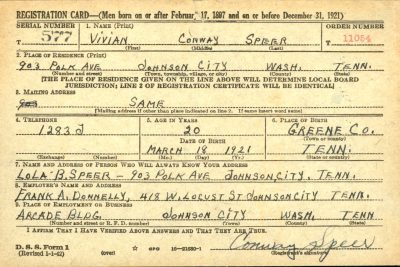 REGISTRATION CARD—(Men born on or after February 17, 1897 and on or before December 31, 1921)
SERIAL NUMBER 1. NAME (Print) ORDER NUMBER
T 577 VIVIAN CONWAY SPEER T 11054
(First) (Middle) (Last)
2. PLACE OF RESIDENCE (Print)
903 POLK AVE JOHNSON CITY WASH. TENN.
(Number and street) (Town, township, village, or city) (County) (State)
[THE PLACE OF RESIDENCE GIVEN ON THE LINE ABOVE WILL DETERMINE LOCAL BOARD
JURISDICTION; LINE 2 OF REGISTRATION CERTIFICATE WILL BE IDENTICAL]
3. MAILING ADDRESS
SAME
[Mailing address if other than place indicated on line 2. If same insert word same]
4. TELEPHONE 5. AGE IN YEARS 6. PLACE OF BIRTH
1283J 20 GREENE CO.
DATE OF BIRTH (Town or county)
MARCH 18 1921 TENN.
(Exchange) (Number) (Mo.) (Day) (Yr.) (State or country)
7. NAME AND ADDRESS OF PERSON WHO WILL ALWAYS KNOW YOUR ADDRESS
LOLA B. SPEER — 903 POLK AVE JOHNSON, CITY, TENN.
8. EMPLOYER'S NAME AND ADDRESS
FRANK A. DONNELLY, 418 W. LOCUST ST JOHNSON CITY TENN.
9. PLACE OF EMPLOYMENT OR BUSINESS
ARCADE BLDG. JOHNSON CITY WASH TENN
(Number and street or R. F. D. number) (Town) (County) (State)
I AFFIRM THAT I HAVE VERIFIED ABOVE ANSWERS AND THAT THEY ARE TRUE.
D. S. S. Form 1
(Revised 1-1-42) (over) GPO 16—21630-1 Conway Speer
(Registrant's signature)